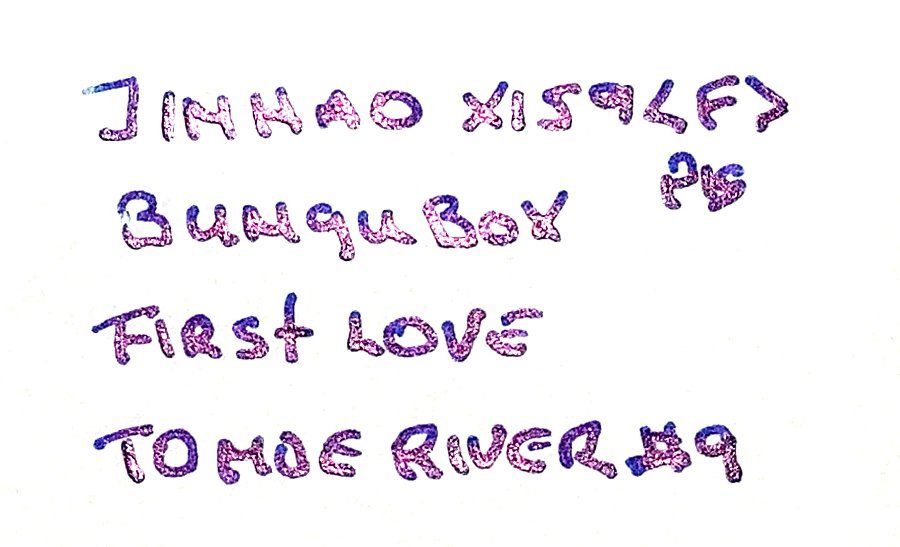 JINHAO X159<F>
BUNGUBOX
FIRST LOVE
TOMOE RIVER #9